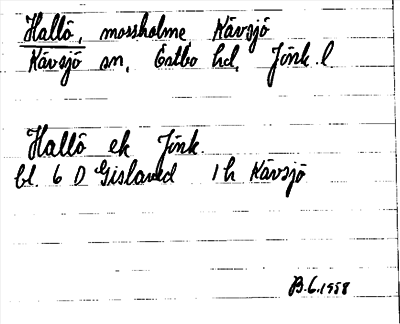 Hallö, mossholme Kävsjö
Kävsjö sn, Östbo hd, Jönk. l
Hallö ek Jönk.
bl. 6 D Gislaved 1 h Kävsjö
B.L. 1958